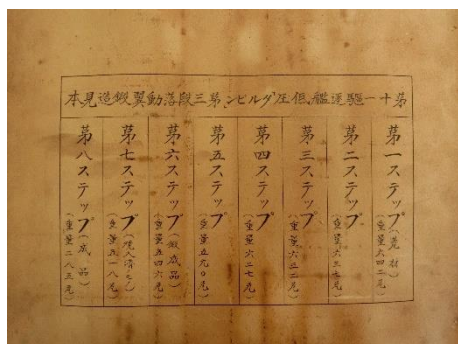 苐十一驅逐艦低圧タルビン苐三段落動翼鍛造見本
苐一ステップ(荒材)
(重量六四二瓦)
苐二ステップ
(重量六三七瓦)
苐三ステップ
(重量六三二瓦)
苐四ステップ
(重量六二七瓦)
苐五ステップ
(重量五九〇瓦)
苐六ステップ(鍛成品)
(重量五四六瓦)
苐七ステップ(焼入済モノ)
(重量五一八瓦)
苐八ステップ(成品)
(重量二八三瓦)